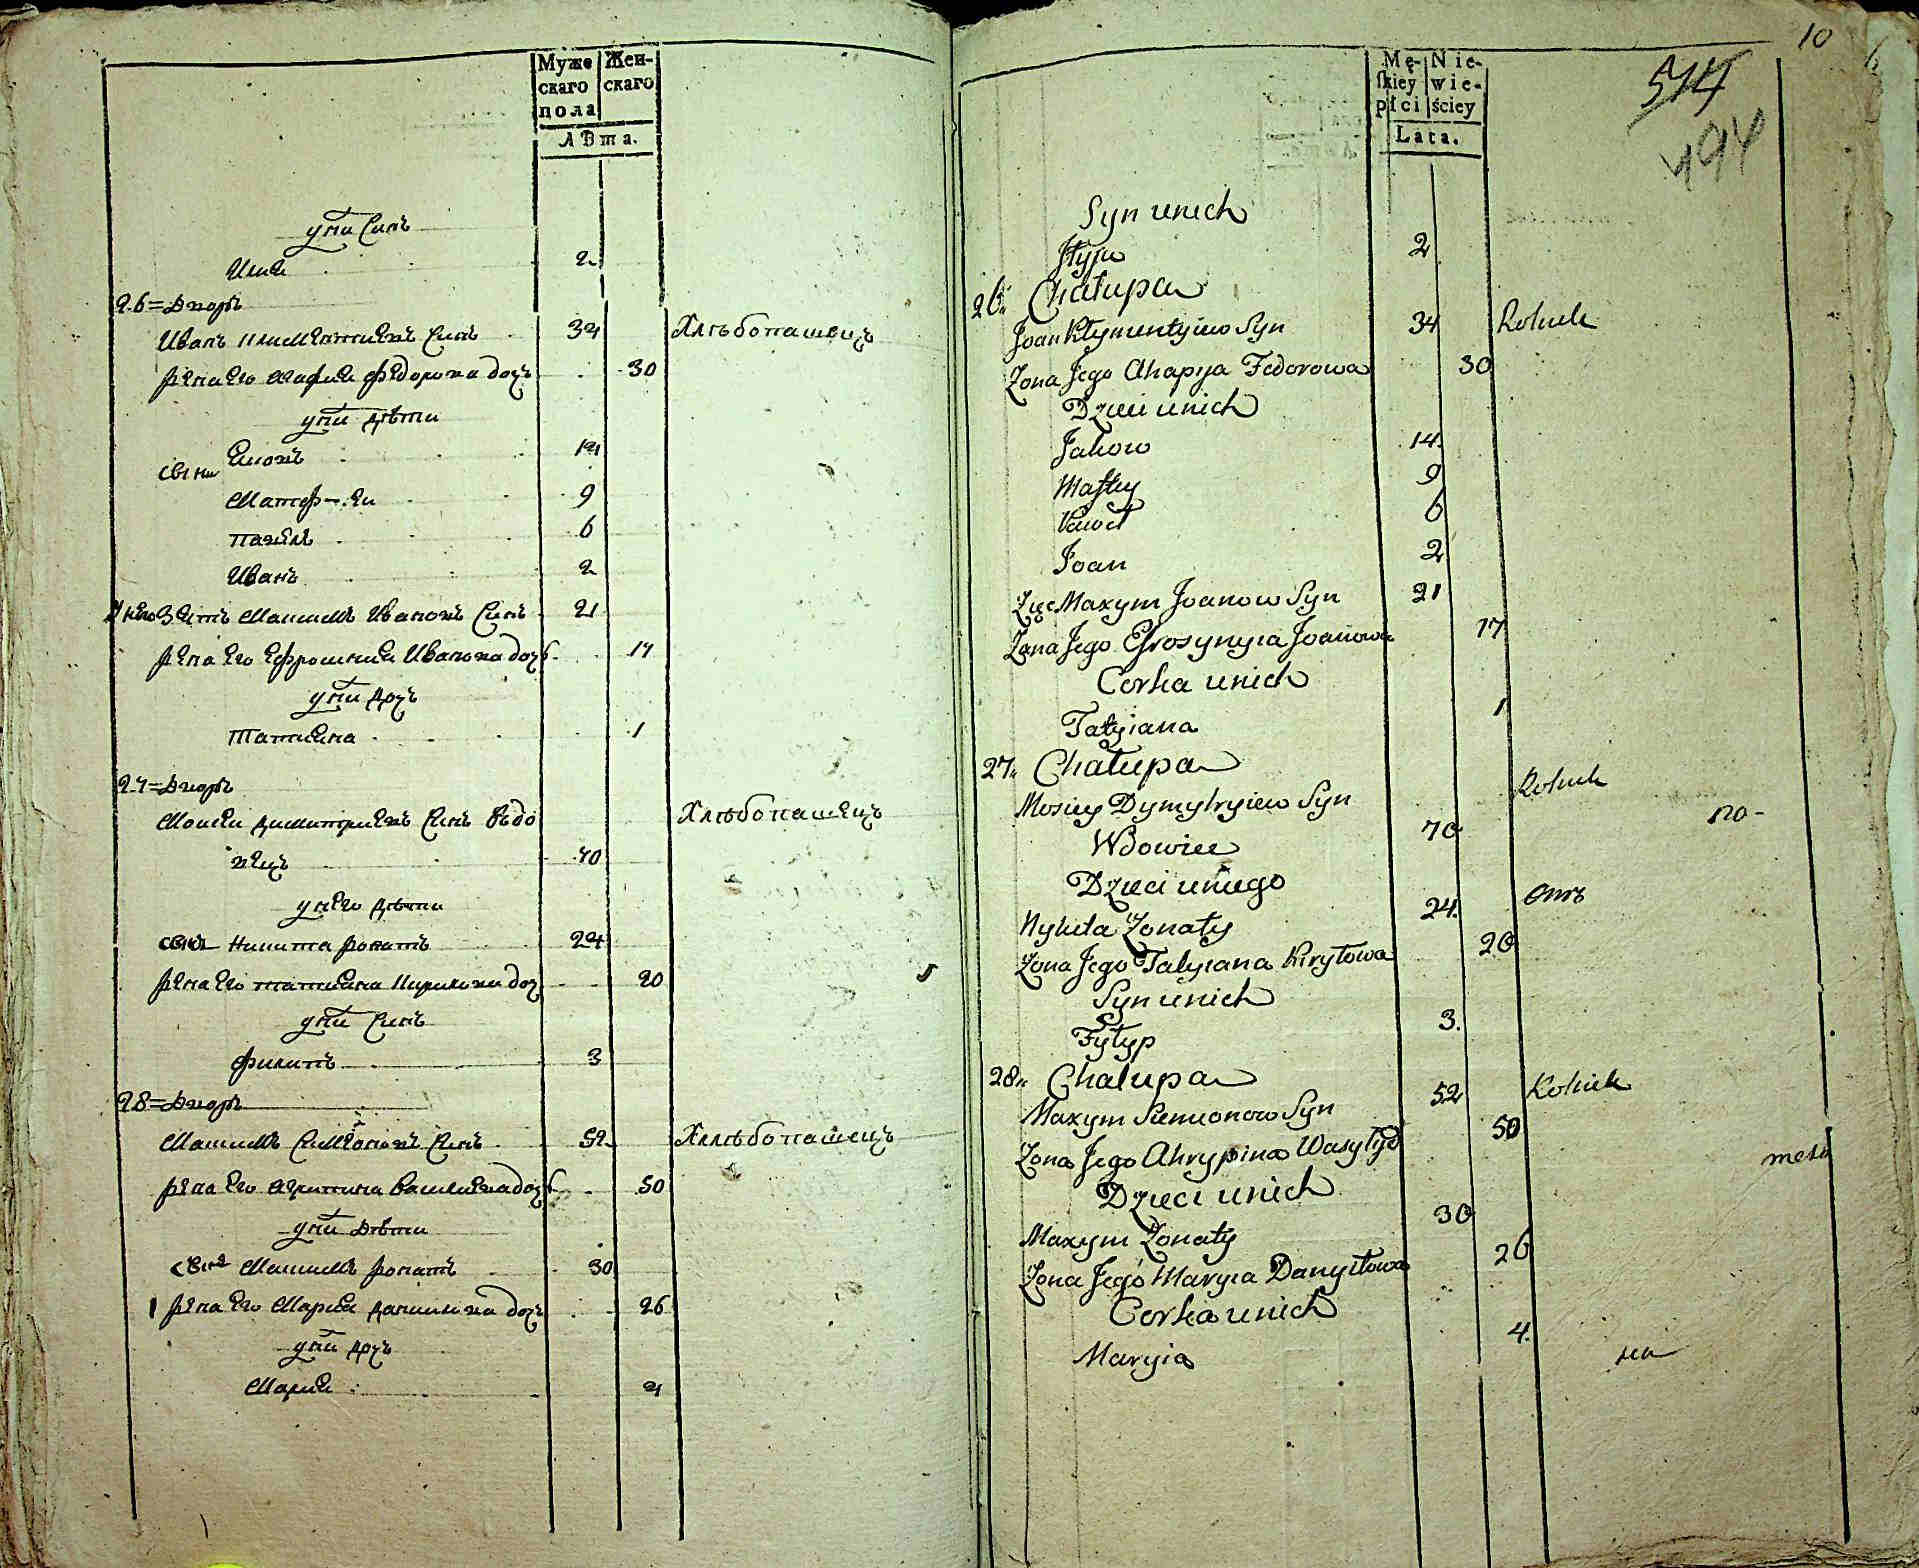 Муже
скаго
пола
Жен-
скаго
Лѣта.
у них Синъ
Илия 2
26 = Дворъ
Иванъ Климентиевъ Синъ 34 Хлѣбопашецъ
жена его Агафия Федорова дочъ 30
у них дѣти
сини Яковъ 14
Матфей 9
павелъ 6
Иванъ 2
У него Зять Максимъ Ивановъ Синъ 21
жена его Ефросиния Иванова дочъ 17
у них дочъ
татияна 1
27 = Дворъ
Моисей димитриевъ Синъ вдо Хлѣбопашецъ
вецъ 70
у него дѣти
синъ никита жонатъ 24
жена его татияна Кирилова доч 20
у них Синъ
филипъ 3
28 = Дворъ
Максимъ Симеоновъ Синъ 52 Хлѣбопашецъ
жена его агрипина василиева дочъ 50
у них Дѣти
синъ Максимъ жонатъ 30
жена его Мария данилова дочъ 26
у них дочъ
Мария 4
10
Mę-
skiey
płci
Nie-
wie-
ściey
Lata.
514
494
Syn u nich
Jłyja 2
26 Chałupa
Joan Kłymentyiew Syn 34 Rolnik
Żona Jego Ahapija Fedorowa 30
Dzieci u nich
Jakow 14
Matfey 9
Paweł 6
Joan 2
Zięć Maxym Joanow Syn 21
Żona Jego Efrosynyia Joanowa 17
Corka u nich
Tatyiana 1
27 Chałupa
Mosiey Dymytryiew Syn Rolnik
Wdowiec 70
Dzieci u niego
Nykita Żonaty 24
Żona Jego Tatyiana Kiryłowa 20
Syn u nich
Fyłyp 3
28 Chałupa
Maxym Siemionow Syn 52 Rolnik
Żona Jego Ahrypina Wasyły 50
Dzieci u nich
Maxym Żonaty 30
Żona Jego Maryia Danyłowa 26
Corka u nich
Maryia 4